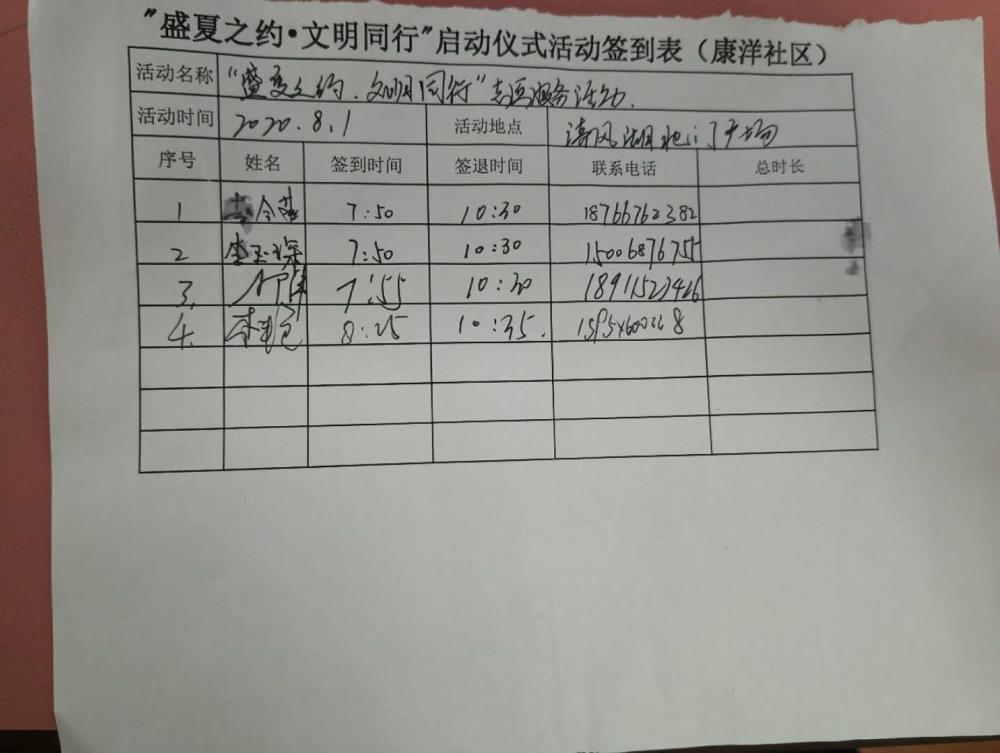 "盛夏之约·文明同行"启动仪式活动签到表（康洋社区）
活动名称 "盛夏之约.文明同行"志愿服务活动.
活动时间 2020.8.1 活动地点 清风湖北门广场
序号 姓名 签到时间 签退时间 联系电话 总时长
1 7:50 10:30 18766762382
2 7:50 10:30 15006876755
3. 7:55 10:30 18911527426
4. 8:25 10:35.